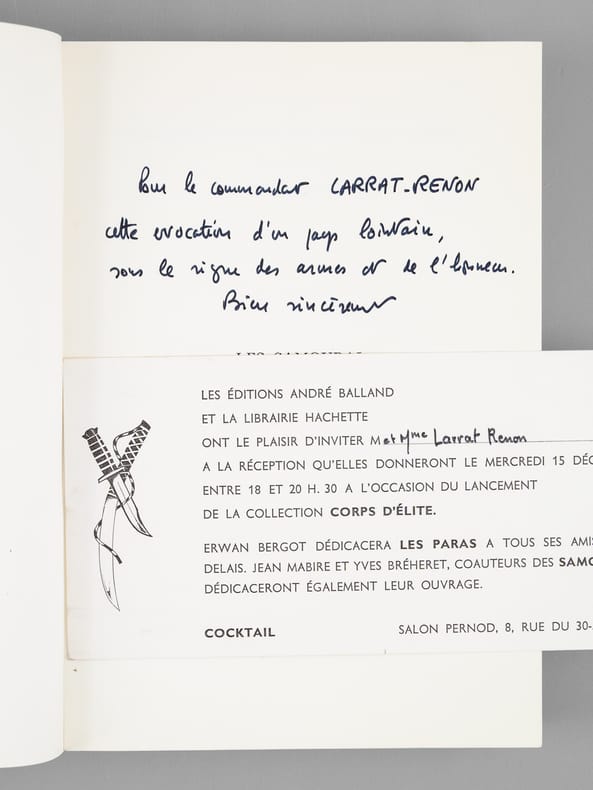 Pour le commandant LARRAT-RENON
cette evocation d'un pays lointain,
sous le signe des armes et de l'honneur.
Bien sincèrement
LES SAMOURAI
LES ÉDITIONS ANDRÉ BALLAND
ET LA LIBRAIRIE HACHETTE
ONT LE PLAISIR D'INVITER M et Mme Larrat Renon
A LA RÉCEPTION QU'ELLES DONNERONT LE MERCREDI 15 DÉC
ENTRE 18 ET 20 H. 30 A L'OCCASION DU LANCEMENT
DE LA COLLECTION CORPS D'ÉLITE.
ERWAN BERGOT DÉDICACERA LES PARAS A TOUS SES AMIS
DELAIS. JEAN MABIRE ET YVES BRÉHERET, COAUTEURS DES SAMO
DÉDICACERONT ÉGALEMENT LEUR OUVRAGE.
COCKTAIL
SALON PERNOD, 8, RUE DU 30-